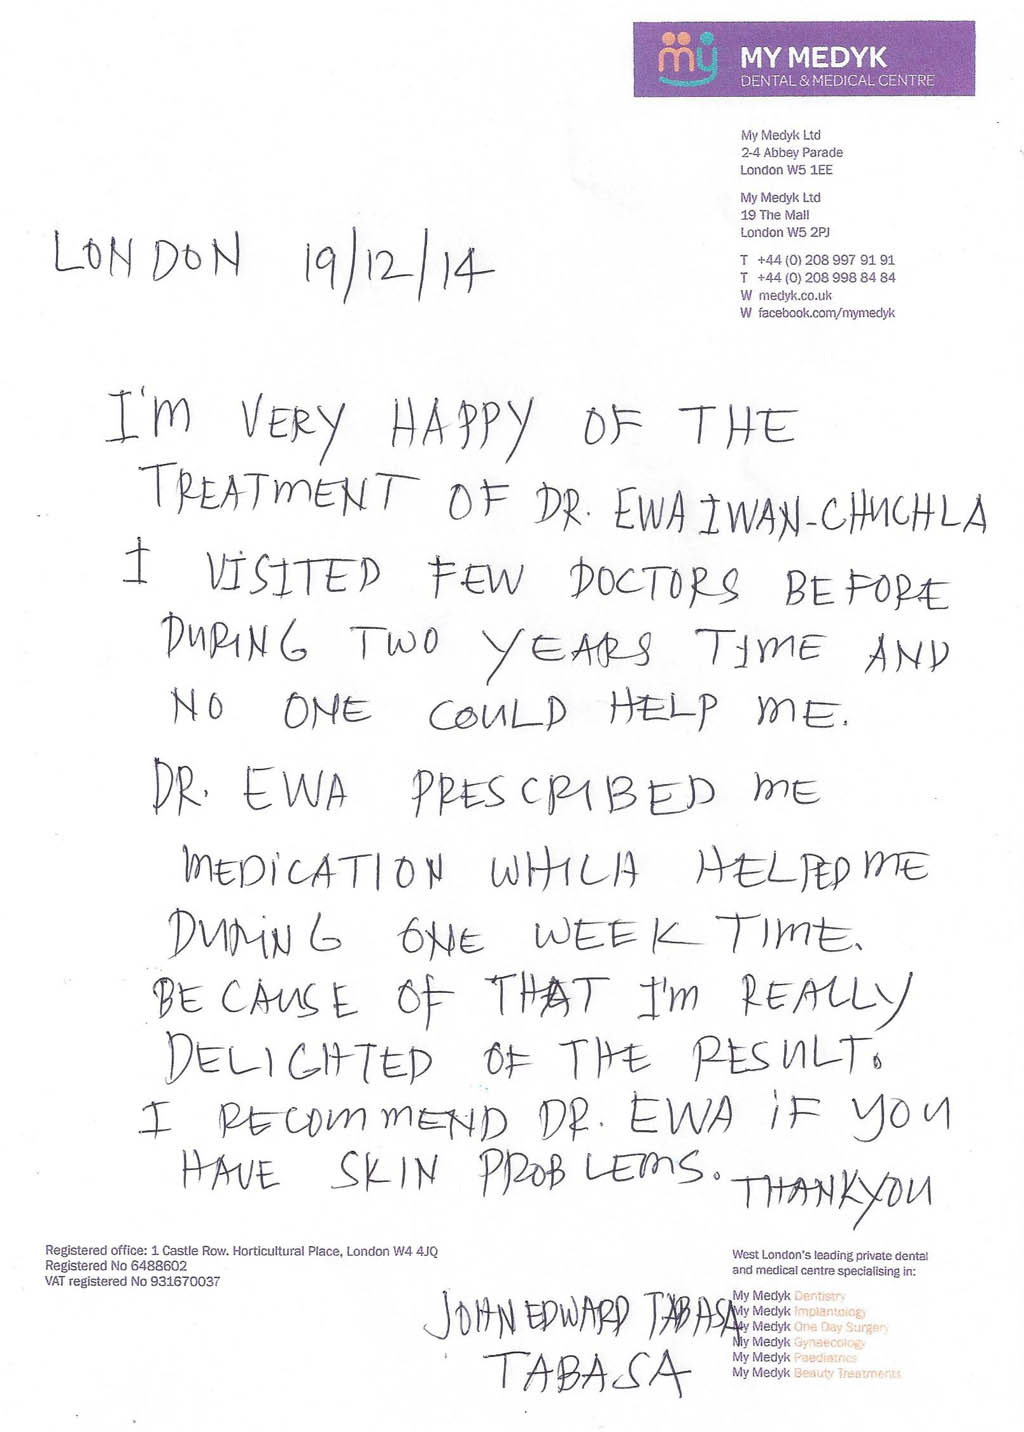 my MY MEDYK
DENTAL & MEDICAL CENTRE
My Medyk Ltd
2-4 Abbey Parade
London W5 1EE
My Medyk Ltd
19 The Mall
London W5 2PJ
T +44 (0) 208 997 91 91
T +44 (0) 208 998 84 84
W medyk.co.uk
W facebook.com/mymedyk
LONDON 19/12/14
I'M VERY HAPPY OF THE
TREATMENT OF DR. EWA IWAN-CHUCHLA
I VISITED FEW DOCTORS BEFORE
DURING TWO YEARS TIME AND
NO ONE COULD HELP ME.
DR. EWA PRESCRIBED ME
MEDICATION WHICH HELPED ME
DURING ONE WEEK TIME.
BECAUSE OF THAT I'M REALLY
DELIGHTED OF THE RESULT.
I RECOMMEND DR. EWA IF YOU
HAVE SKIN PROBLEMS. THANK YOU
Registered office: 1 Castle Row. Horticultural Place, London W4 4JQ
Registered No 6488602
VAT registered No 931670037
JOHN EDWARD TABASA
TABASA
West London's leading private dental
and medical centre specialising in:
My Medyk Dentistry
My Medyk Implantology
My Medyk One Day Surgery
My Medyk Gynaecology
My Medyk Paediatrics
My Medyk Beauty Treatments